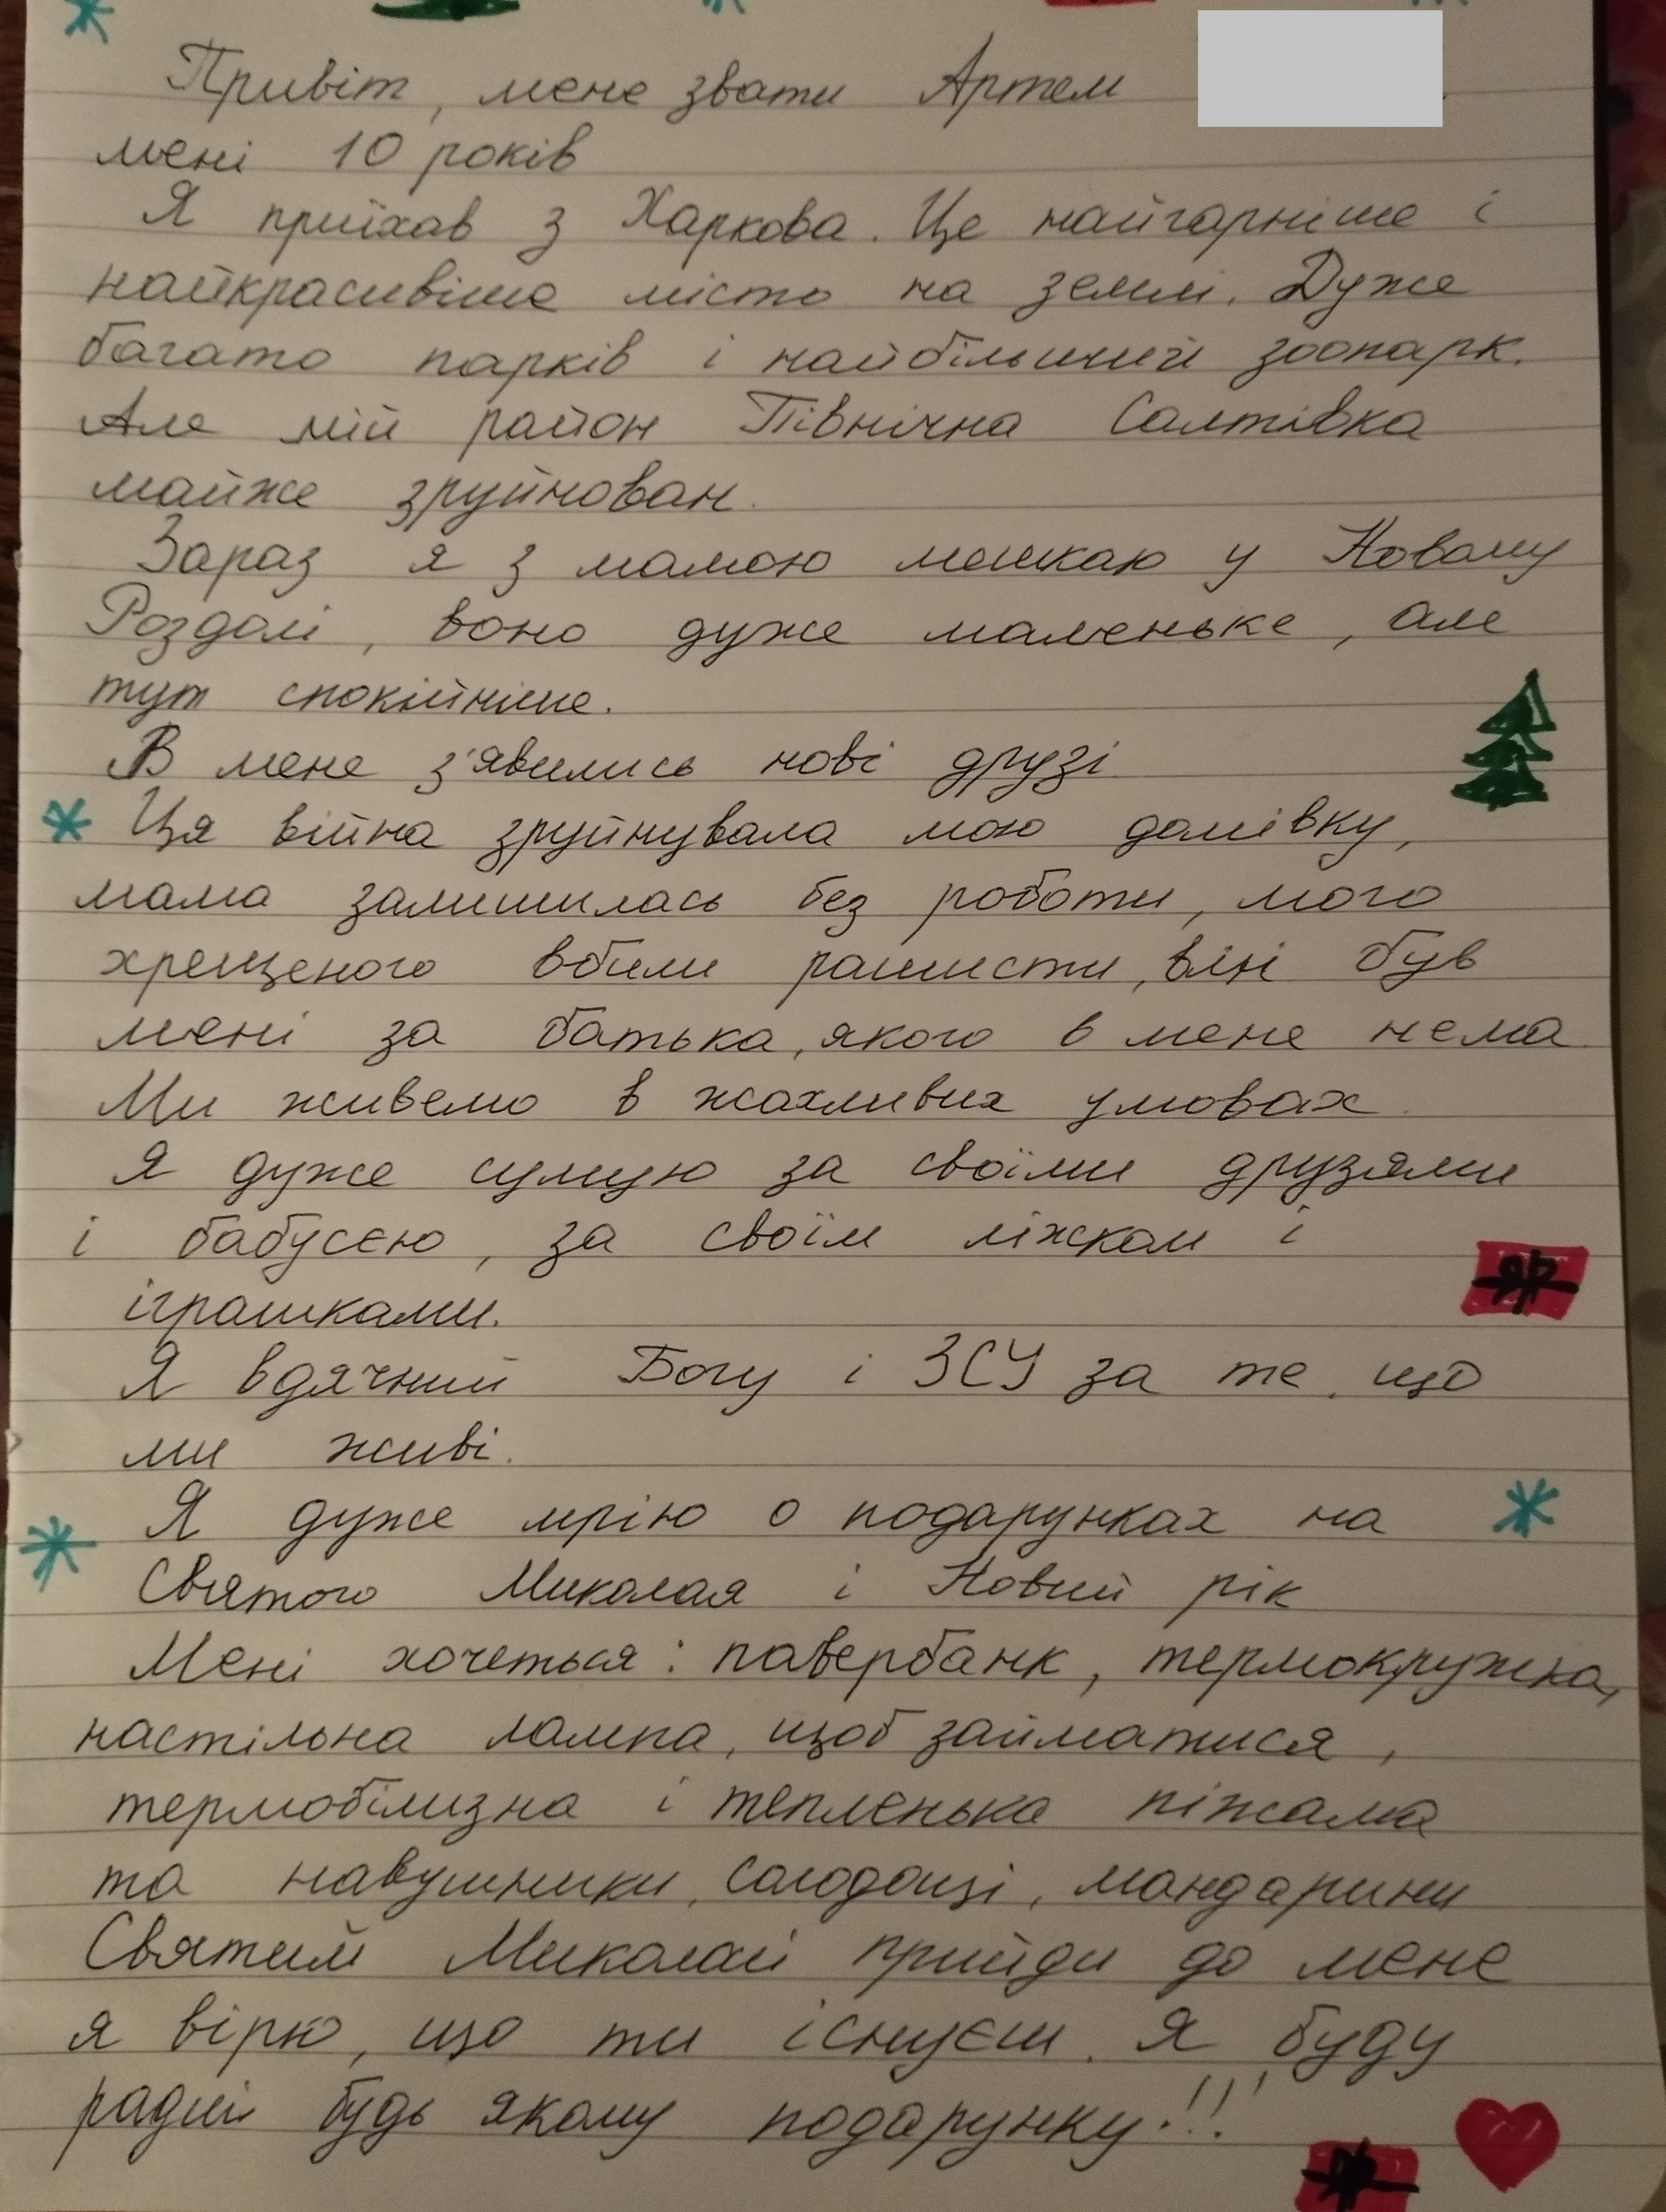 Привіт, мене звати Артем
мені 10 років
Я приїхав з Харкова. Це найгарніше і
найкрасивіше місто на землі. Дуже
багато парків і найбільший зоопарк.
Але мій район Північна Салтівка
майже зруйнован.
Зараз я з мамою мешкаю у Новому
Роздолі, воно дуже маленьке, але
тут спокійніше.
В мене з'явились нові друзі.
Ця війна зруйнувала мою домівку,
мама залишилась без роботи, мого
хрещеного вбили рашисти, він був
мені за батька, якого в мене нема.
Ми живемо в жахливих умовах.
Я дуже сумую за своїми друзями
і бабусею, за своїм ліжком і
іграшками.
Я вдячний Богу і ЗСУ за те, що
ми живі.
Я дуже мрію о подарунках на
Святого Миколая і Новий рік
Мені хочеться: павербанк, термокружка,
настільна лампа, щоб займатися,
термобілизна і тепленька піжама
та навушники, солодощі, мандарини
Святий Миколай прийди до мене
я вірю, що ти існуєш. Я буду
радий будь якому подарунку!!!